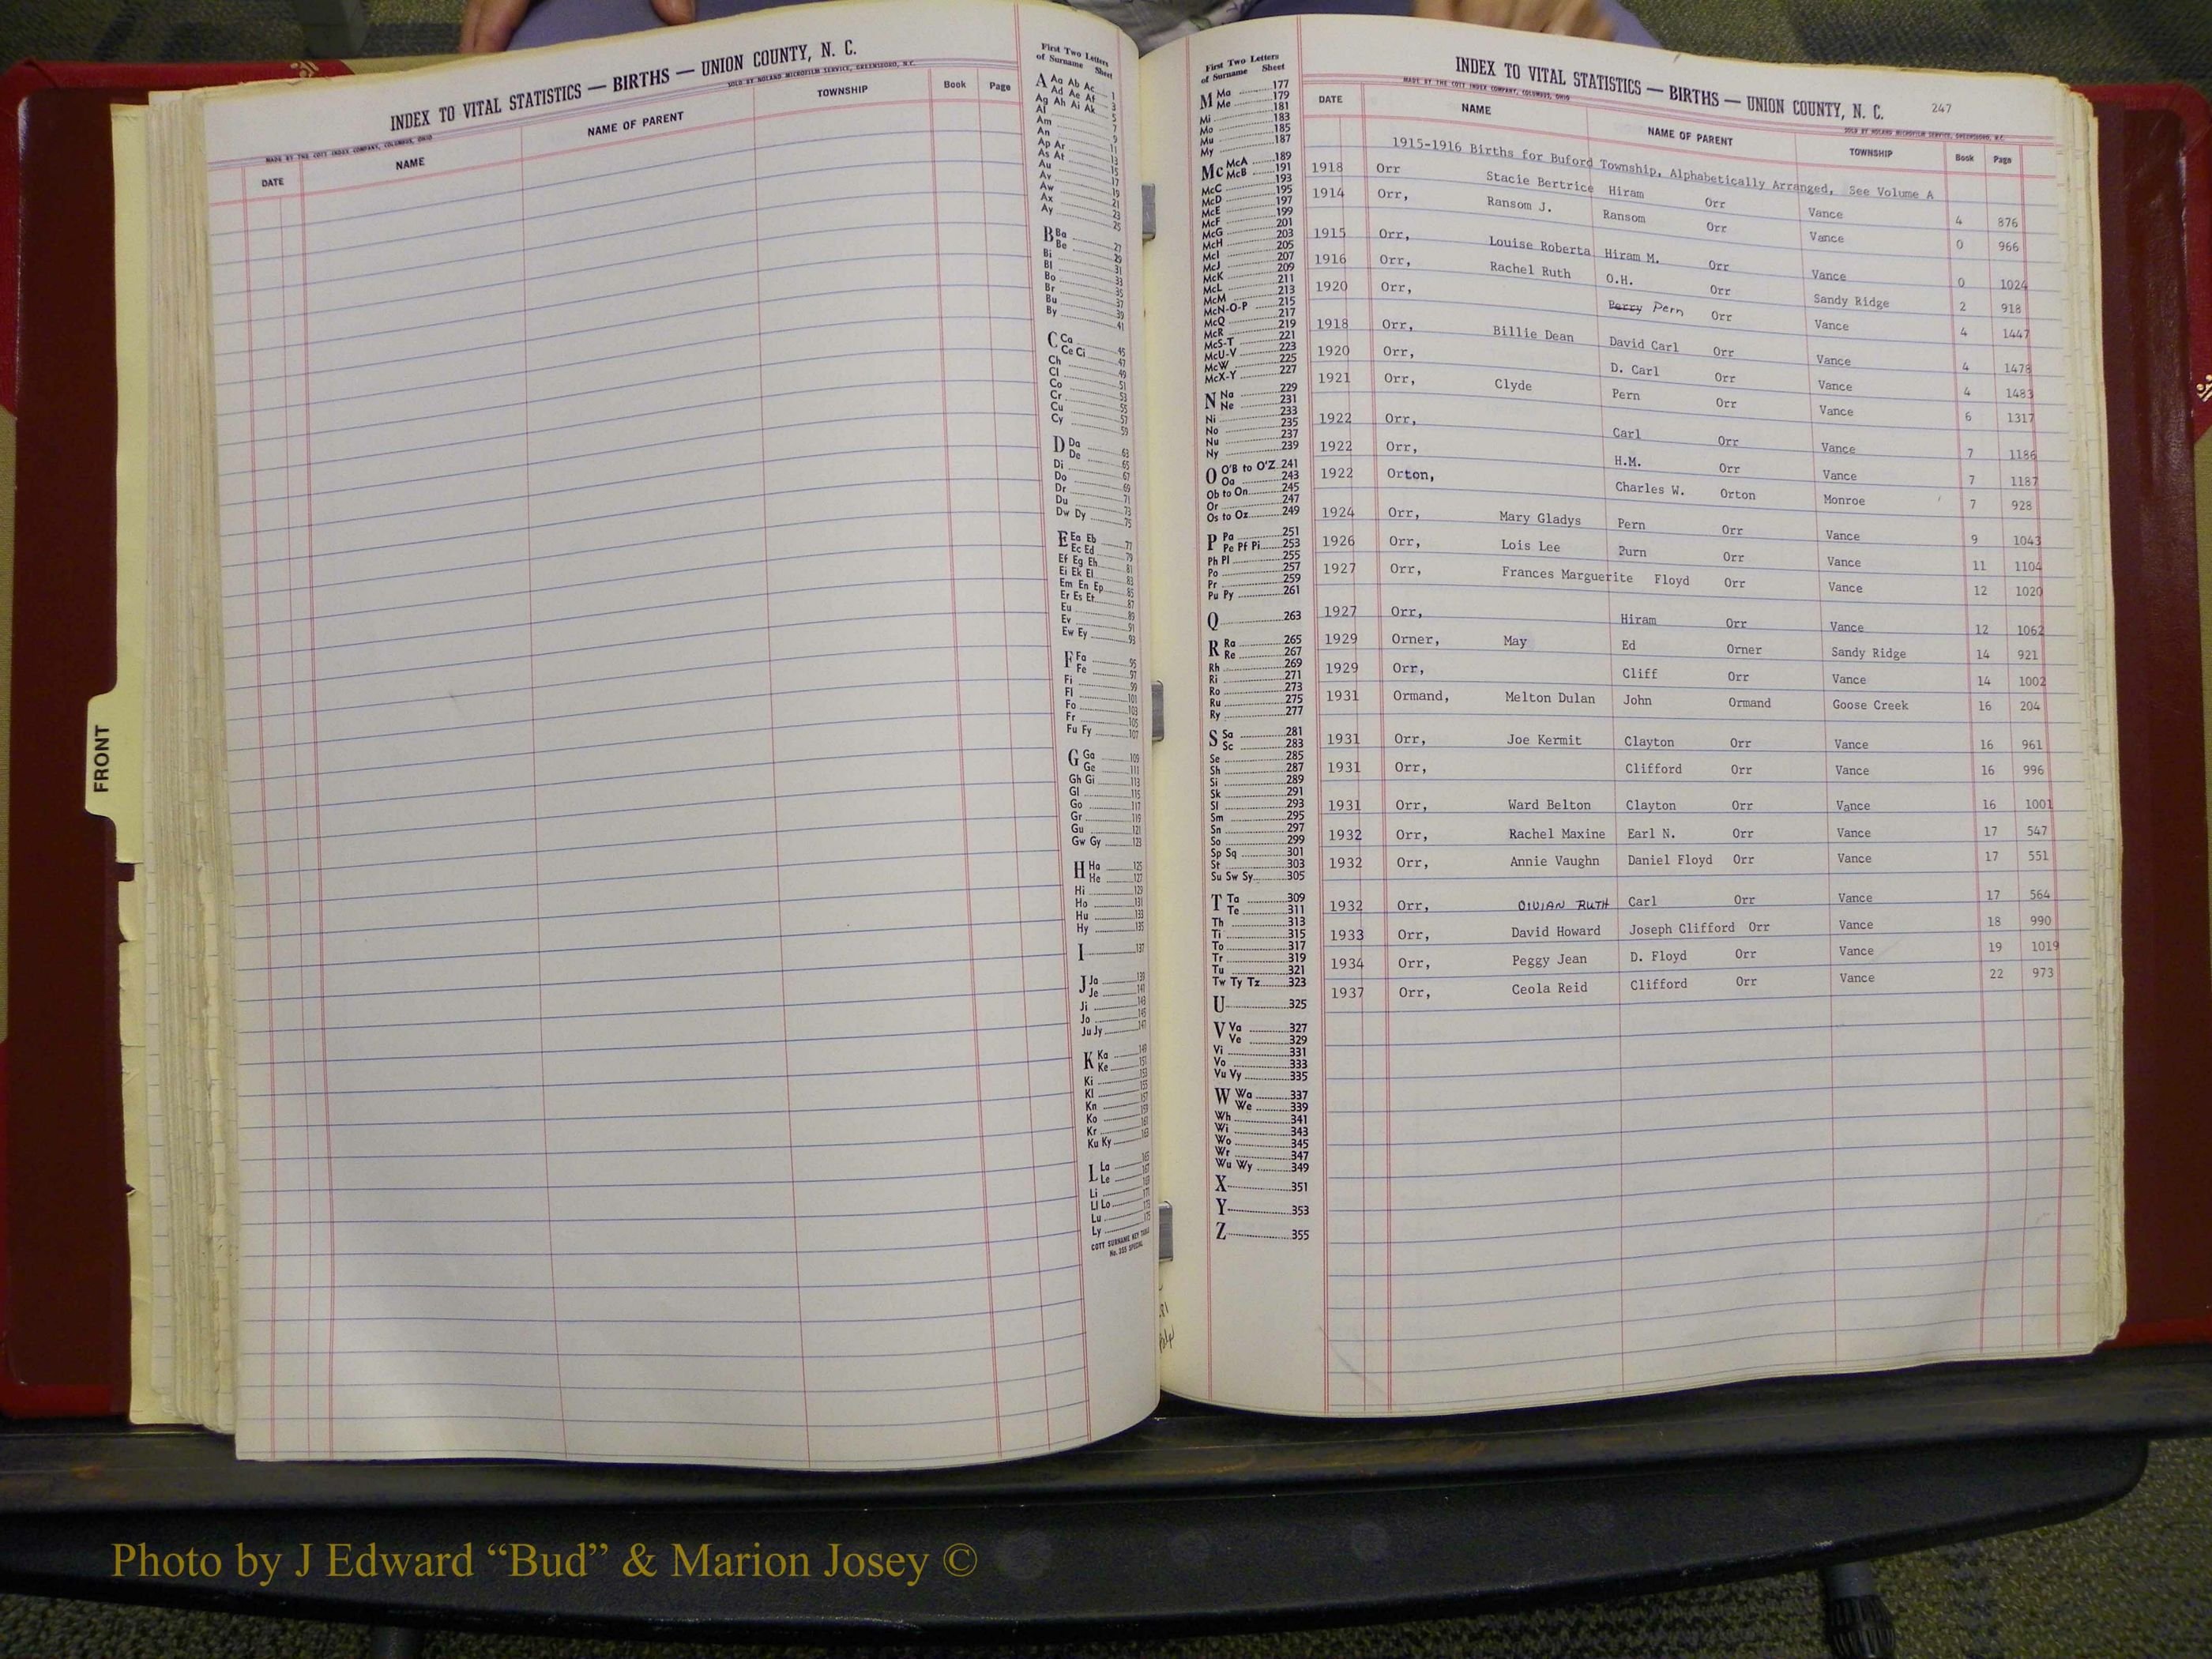 INDEX TO VITAL STATISTICS — BIRTHS — UNION COUNTY, N. C.
MADE BY THE COTT INDEX COMPANY, COLUMBUS, OHIO
SOLD BY NOLAND MICROFILM SERVICE, GREENSBORO, N.C.
DATE NAME NAME OF PARENT TOWNSHIP Book Page
First Two Letters
of Surname Sheet
A Aa Ab Ac 1
Ad Ae Af 3
Ag Ah Ai Ak 5
Al 7
Am 9
An 11
Ap Ar 13
As At 15
Au 17
Av 19
Aw 21
Ax 23
Ay 25
B Ba 27
Be 29
Bi 31
Bl 33
Bo 35
Br 37
Bu 39
By 41
C Ca 45
Ce Ci 47
Ch 49
Cl 51
Co 53
Cr 55
Cu 57
Cy 59
D Da 63
De 65
Di 67
Do 69
Dr 71
Du 73
Dw Dy 75
E Ea Eb 77
Ec Ed 79
Ef Eg Eh 81
Ei Ek El 83
Em En Ep 85
Er Es Et 87
Eu 89
Ev 91
Ew Ey 93
F Fa 95
Fe 97
Fi 99
Fl 101
Fo 103
Fr 105
Fu Fy 107
G Ga 109
Ge 111
Gh Gi 113
Gl 115
Go 117
Gr 119
Gu 121
Gw Gy 123
H Ha 125
He 127
Hi 129
Ho 131
Hu 133
Hy 135
I 137
J Ja 139
Je 141
Ji 143
Jo 145
Ju Jy 147
K Ka 149
Ke 151
Ki 153
Kl 155
Kn 157
Ko 159
Kr 161
Ku Ky 163
L La 165
Le 167
Li 169
Ll Lo 171
Lu 173
Ly 175
COTT SURNAME KEY
No. 355 SPECIAL
FRONT
First Two Letters
of Surname Sheet
M Ma 177
Me 179
Mi 181
Mo 183
Mu 185
My 187
Mc McA 189
McB 191
McC 193
McD 195
McE 197
McF 199
McG 201
McH 203
McI 205
McJ 207
McK 209
McL 211
McM 213
McN-O-P 215
McQ 217
McR 219
McS-T 221
McU-V 223
McW 225
McX-Y 227
N Na 229
Ne 231
Ni 233
No 235
Nu 237
Ny 239
O O'B to O'Z 241
Oa 243
Ob to On 245
Or 247
Os to Oz 249
P Pa 251
Pe Pf Pi 253
Ph Pl 255
Po 257
Pr 259
Pu Py 261
Q 263
R Ra 265
Re 267
Rh 269
Ri 271
Ro 273
Ru 275
Ry 277
S Sa 281
Sc 283
Se 285
Sh 287
Si 289
Sk 291
Sl 293
Sm 295
Sn 297
So 299
Sp Sq 301
St 303
Su Sw Sy 305
T Ta 309
Te 311
Th 313
Ti 315
To 317
Tr 319
Tu 321
Tw Ty Tz 323
U 325
V Va 327
Ve 329
Vi 331
Vo 333
Vu Vy 335
W Wa 337
We 339
Wh 341
Wi 343
Wo 345
Wr 347
Wu Wy 349
X 351
Y 353
Z 355
INDEX TO VITAL STATISTICS — BIRTHS — UNION COUNTY, N. C. 247
MADE BY THE COTT INDEX COMPANY, COLUMBUS, OHIO
SOLD BY NOLAND MICROFILM SERVICE, GREENSBORO, N.C.
DATE NAME NAME OF PARENT TOWNSHIP Book Page
1915-1916 Births for Buford Township, Alphabetically Arranged, See Volume A
1918 Orr Stacie Bertrice Hiram Orr Vance 4 876
1914 Orr, Ransom J. Ransom Orr Vance 0 966
1915 Orr, Louise Roberta Hiram M. Orr Vance 0 1024
1916 Orr, Rachel Ruth O.H. Orr Sandy Ridge 2 918
1920 Orr, Perry Pern Orr Vance 4 1447
1918 Orr, Billie Dean David Carl Orr Vance 4 1478
1920 Orr, D. Carl Orr Vance 4 1483
1921 Orr, Clyde Pern Orr Vance 6 1317
1922 Orr, Carl Orr Vance 7 1186
1922 Orr, H.M. Orr Vance 7 1187
1922 Orton, Charles W. Orton Monroe 7 928
1924 Orr, Mary Gladys Pern Orr Vance 9 1043
1926 Orr, Lois Lee Purn Orr Vance 11 1104
1927 Orr, Frances Marguerite Floyd Orr Vance 12 1020
1927 Orr, Hiram Orr Vance 12 1062
1929 Orner, May Ed Orner Sandy Ridge 14 921
1929 Orr, Cliff Orr Vance 14 1002
1931 Ormand, Melton Dulan John Ormand Goose Creek 16 204
1931 Orr, Joe Kermit Clayton Orr Vance 16 961
1931 Orr, Clifford Orr Vance 16 996
1931 Orr, Ward Belton Clayton Orr Vance 16 1001
1932 Orr, Rachel Maxine Earl N. Orr Vance 17 547
1932 Orr, Annie Vaughn Daniel Floyd Orr Vance 17 551
1932 Orr, OIVIAN RUTH Carl Orr Vance 17 564
1933 Orr, David Howard Joseph Clifford Orr Vance 18 990
1934 Orr, Peggy Jean D. Floyd Orr Vance 19 1019
1937 Orr, Ceola Reid Clifford Orr Vance 22 973
Photo by J Edward “Bud” & Marion Josey ©